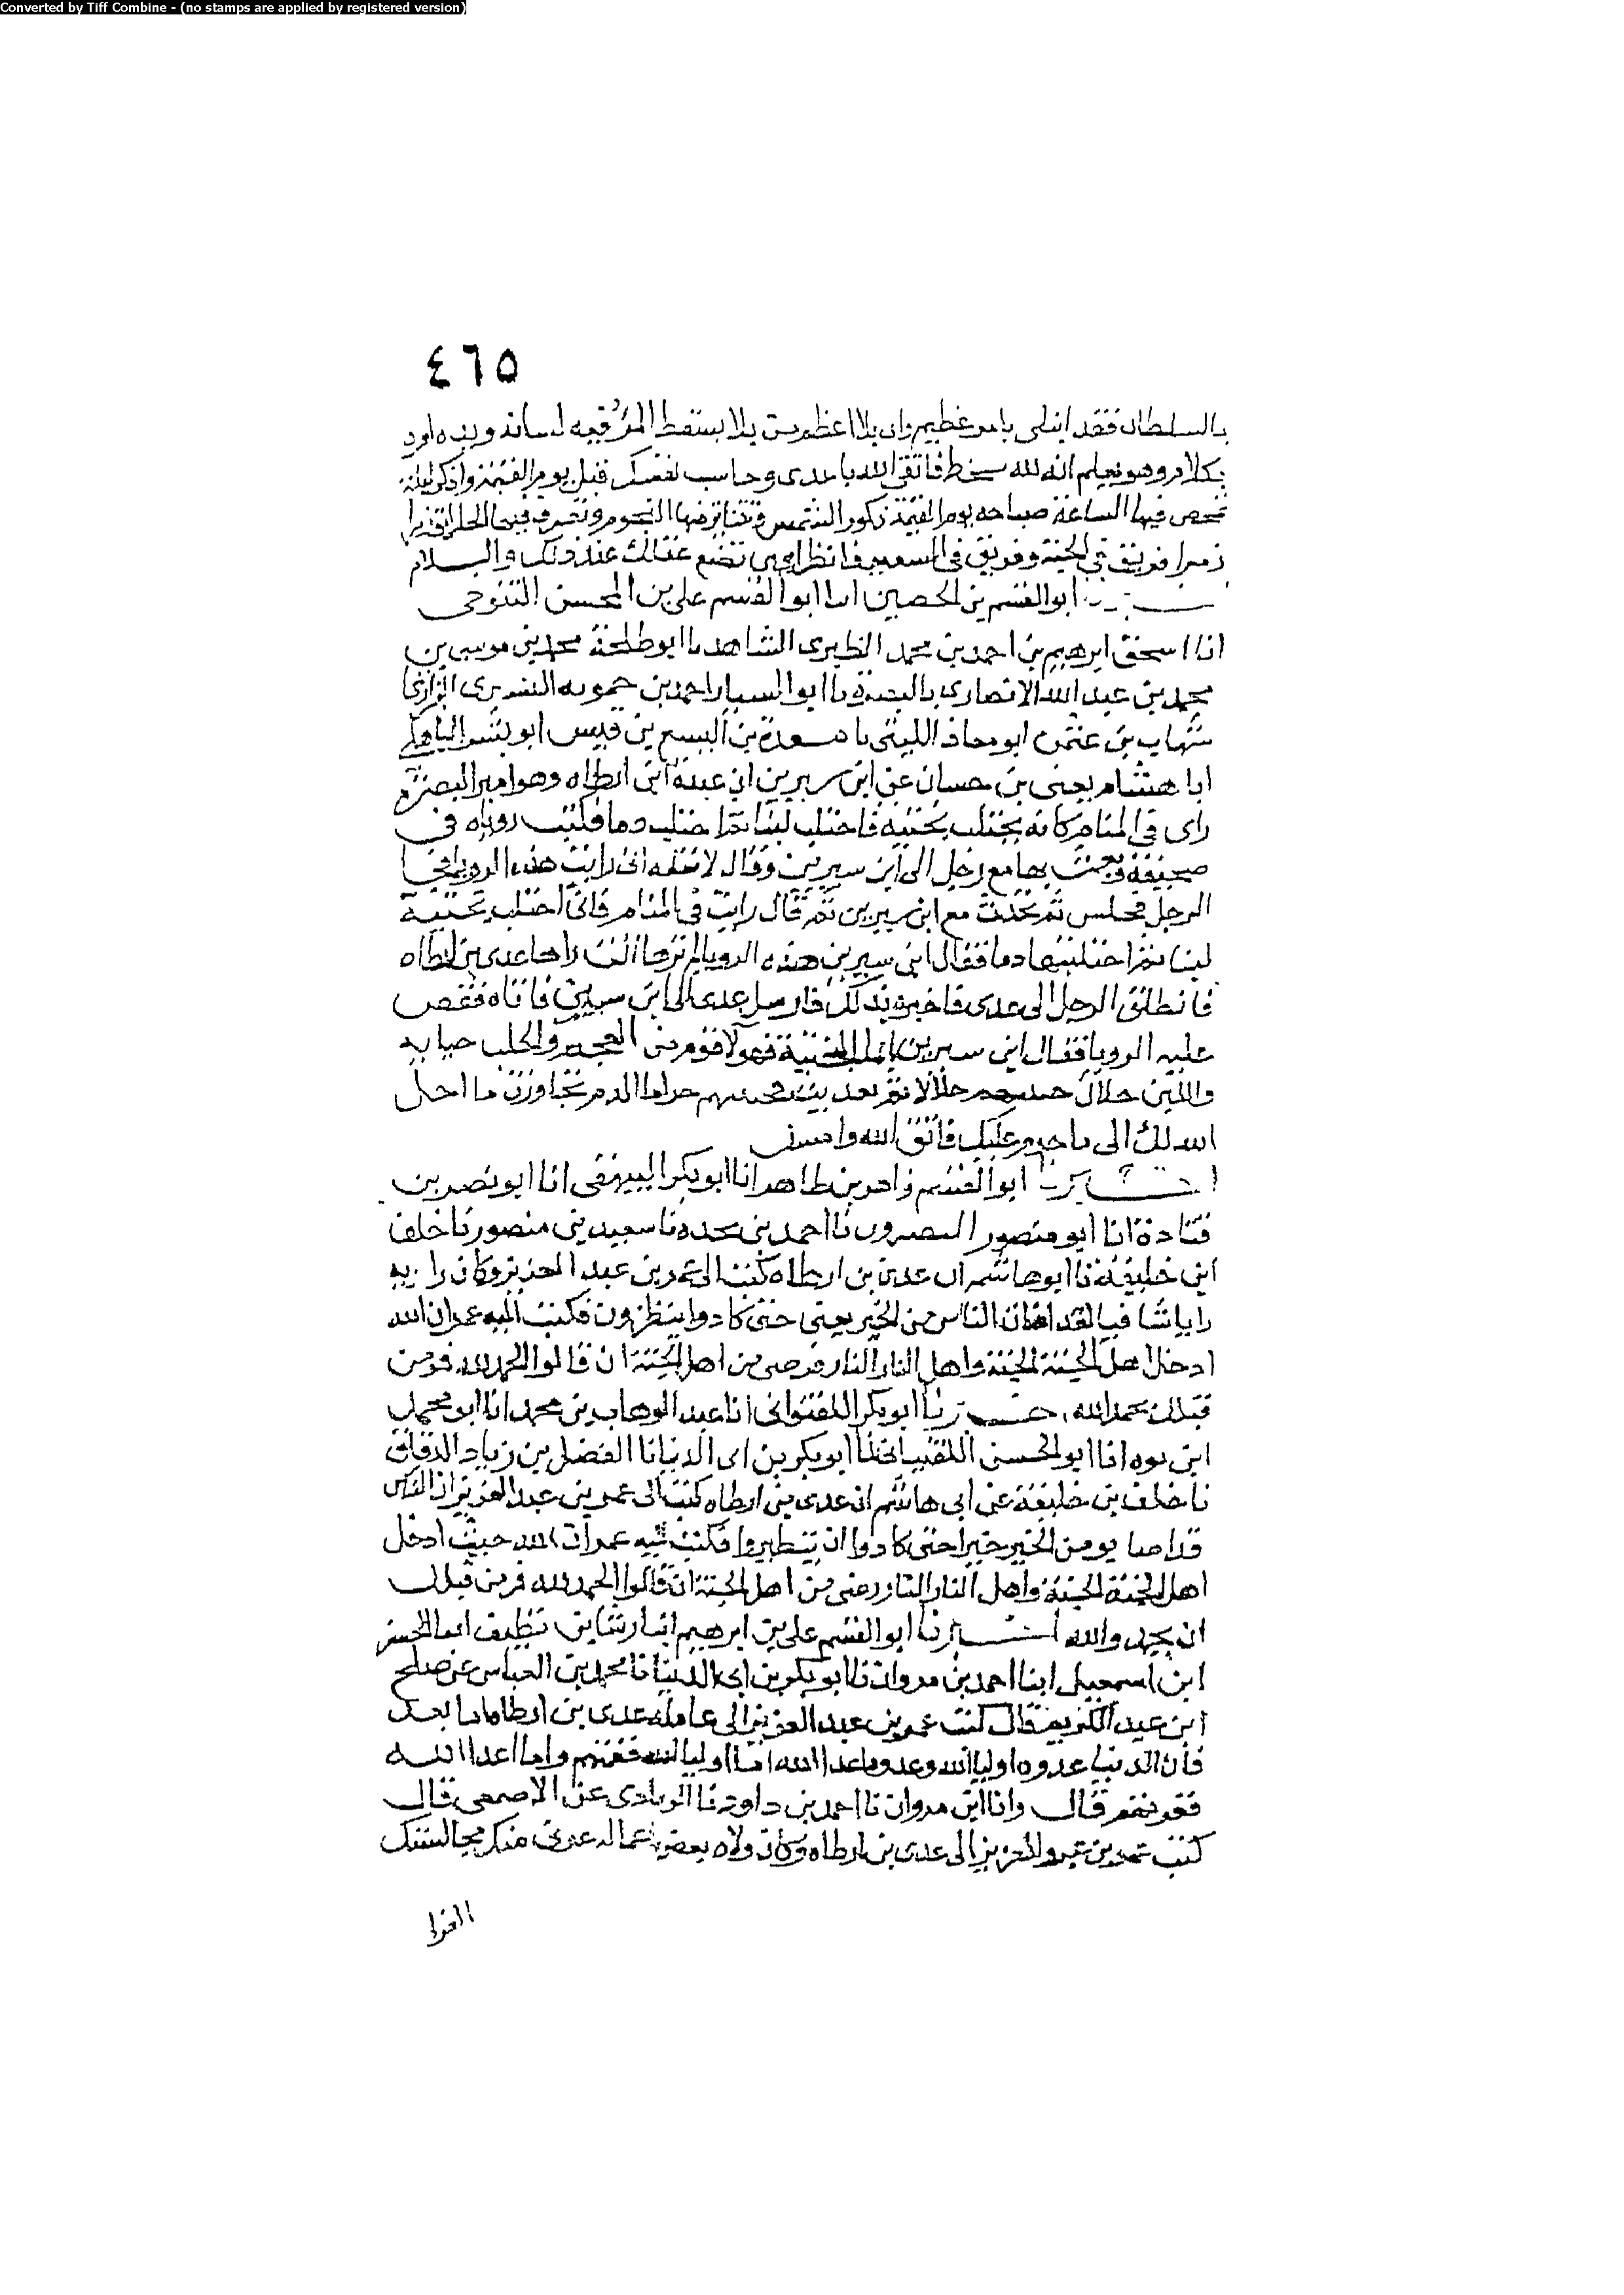 Converted by Tiff Combine - (no stamps are applied by registered version)
٤٦٥
بالسلطان فقد ابتلى بامر عظيم وان بلا اعظم من بلا يسقط المرء فيه لسانه ويده اود
بكلام وهو يعلم انه لله سخط فاتقى الله يا عدى وحاسب نفسك قبل يوم القيمة واذكر ليلة
تمخص فيها الساعة صباحه يوم القيمة تكور الشمس وتتناثر فيها النجوم وتصرف فيها
زمرا فريق فى الجنة وفريق فى السعير فانظر اين تضع عند ذلك والسلام
ابو القسم بن الحصين انا ابو القسم على بن المحسن التنوخى
انا اسحق ابرهيم بن احمد بن محمد الطبرى الشاهد نا ابو طلحة محمد بن موسى بن
محمد بن عبد الله الانصارى بالبصرة نا ابو السيار احمد بن حمويه التسترى البزار نا
شهاب بن عثمن ابو معاذ الليثى نا مسعدة بن اليسع بن قيس ابو بشر الباهلى
ابا هشام يعنى بن حسان عن ابن سيرين ان عدى ابن ارطاه وهو امير البصرة
راى فى المنام كانه يحتلب بختيه فاحتلب لبنا ثم احتلب دما فكتب روياه فى
صحيفة وبعث بها مع رجل الى ابن سيرين وقال لا تقل له انى رايت هذه الرويا فجا
الرجل فجلس ثم تحدث مع ابن سيرين ثم قال رايت فى المنام كانى احتلب بختية
لبنا ثم احتلبتها دما فقال ابن سيرين هذه الرويا لم ترها انت راها عدى بن ارطاه
فانطلق الرجل الى عدى فاخبره بذلك فارسل عدى الى ابن سيرين فاتاه فقص
عليه الرويا فقال ابن سيرين اما البختية فهولا قوم من العجم والحلب جبايه
واللبن حلال جبيتهم حلالا ثم بعد جبيتهم حراما الدم تجاوزت ما احل
الله لك الى ما حرم عليك فاتق الله وامسك
اخبرنا ابو القسم زاهر بن طاهر انا ابو بكر البيهقى انا ابو نصر بن
قتادة انا ابو منصور النضروى نا احمد بن نجده نا سعيد بن منصور نا خلف
ابن خليفة نا ابو هاشم ان عدى بن ارطاه كتب الى عمر بن عبد العزيز وكان
لقد اصاب الناس من الخير يعنى حتى كادوا يبطرون فكتب اليه عمر ان الله
ادخل اهل الجنة الجنة واهل النار النار فرضى من اهل الجنة ان قالوا الحمد لله فمر من
قبلك بحمد الله اخبرنا ابو بكر اللفتوانى انا عبد الوهاب بن محمد انا ابو محمد
ابن يوه انا ابو الحسن اللنبانى نا ابو بكر بن ابى الدنيا نا الفضل بن زياد الدقاق
نا خلف بن خليفة عن ابى هاشم ان عدى بن ارطاه كتب الى عمر بن عبد العزيز ان الناس
قد اصابو من الخير خيرا حتى كادوا ان يبطروا فكتب اليه عمر ان الله حيث ادخل
اهل الجنة الجنة واهل النار النار رضى من اهل الجنة ان قالوا الحمد لله فمر من قبلك
ان يحمدوالله اخبرنا ابو القسم على بن ابرهيم ابنا رشا بن نظيف انا الحسن
ابن اسمعيل ابنا احمد بن مروان نا ابو بكر بن ابى الدنيا نا محمد بن العباس عن صلح
ابن عبد الكريم قال كتب عمر بن عبد العزيز الى عامله عدى بن ارطاه اما بعد
فان الدنيا عدوه اوليا الله وعدوه اعدا الله اما اوليا الله فغمتهم واما اعدا الله
فغرتهم قال وانا ابن مروان نا احمد بن داود نا الزيادى عن الاصمعى قال
كتب عمر بن عبد العزيز الى عدى بن ارطاه وكان ولاه بعض اعماله غرتنى منك مجالستك
القرا